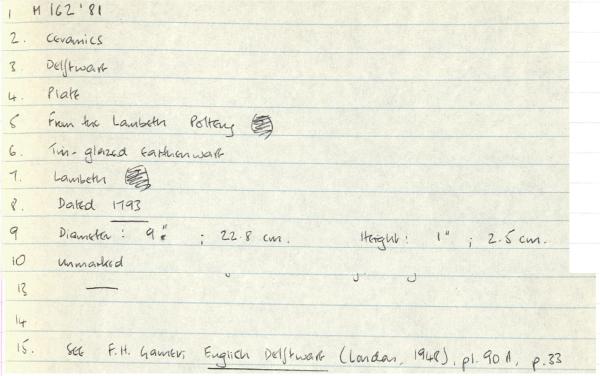 1 M 162 '81
2. Ceramics
3. Delftware
4. Plate
5 From the Lambeth Pottery
6. Tin-glazed earthenware
7. Lambeth
8. Dated 1793
9 Diameter: 9" ; 22.8 cm. Height: 1" ; 2.5 cm.
10 Unmarked
13
14
15. SEE F.H. Garner, English Delftware (London, 1948), pl. 90 A, p. 33